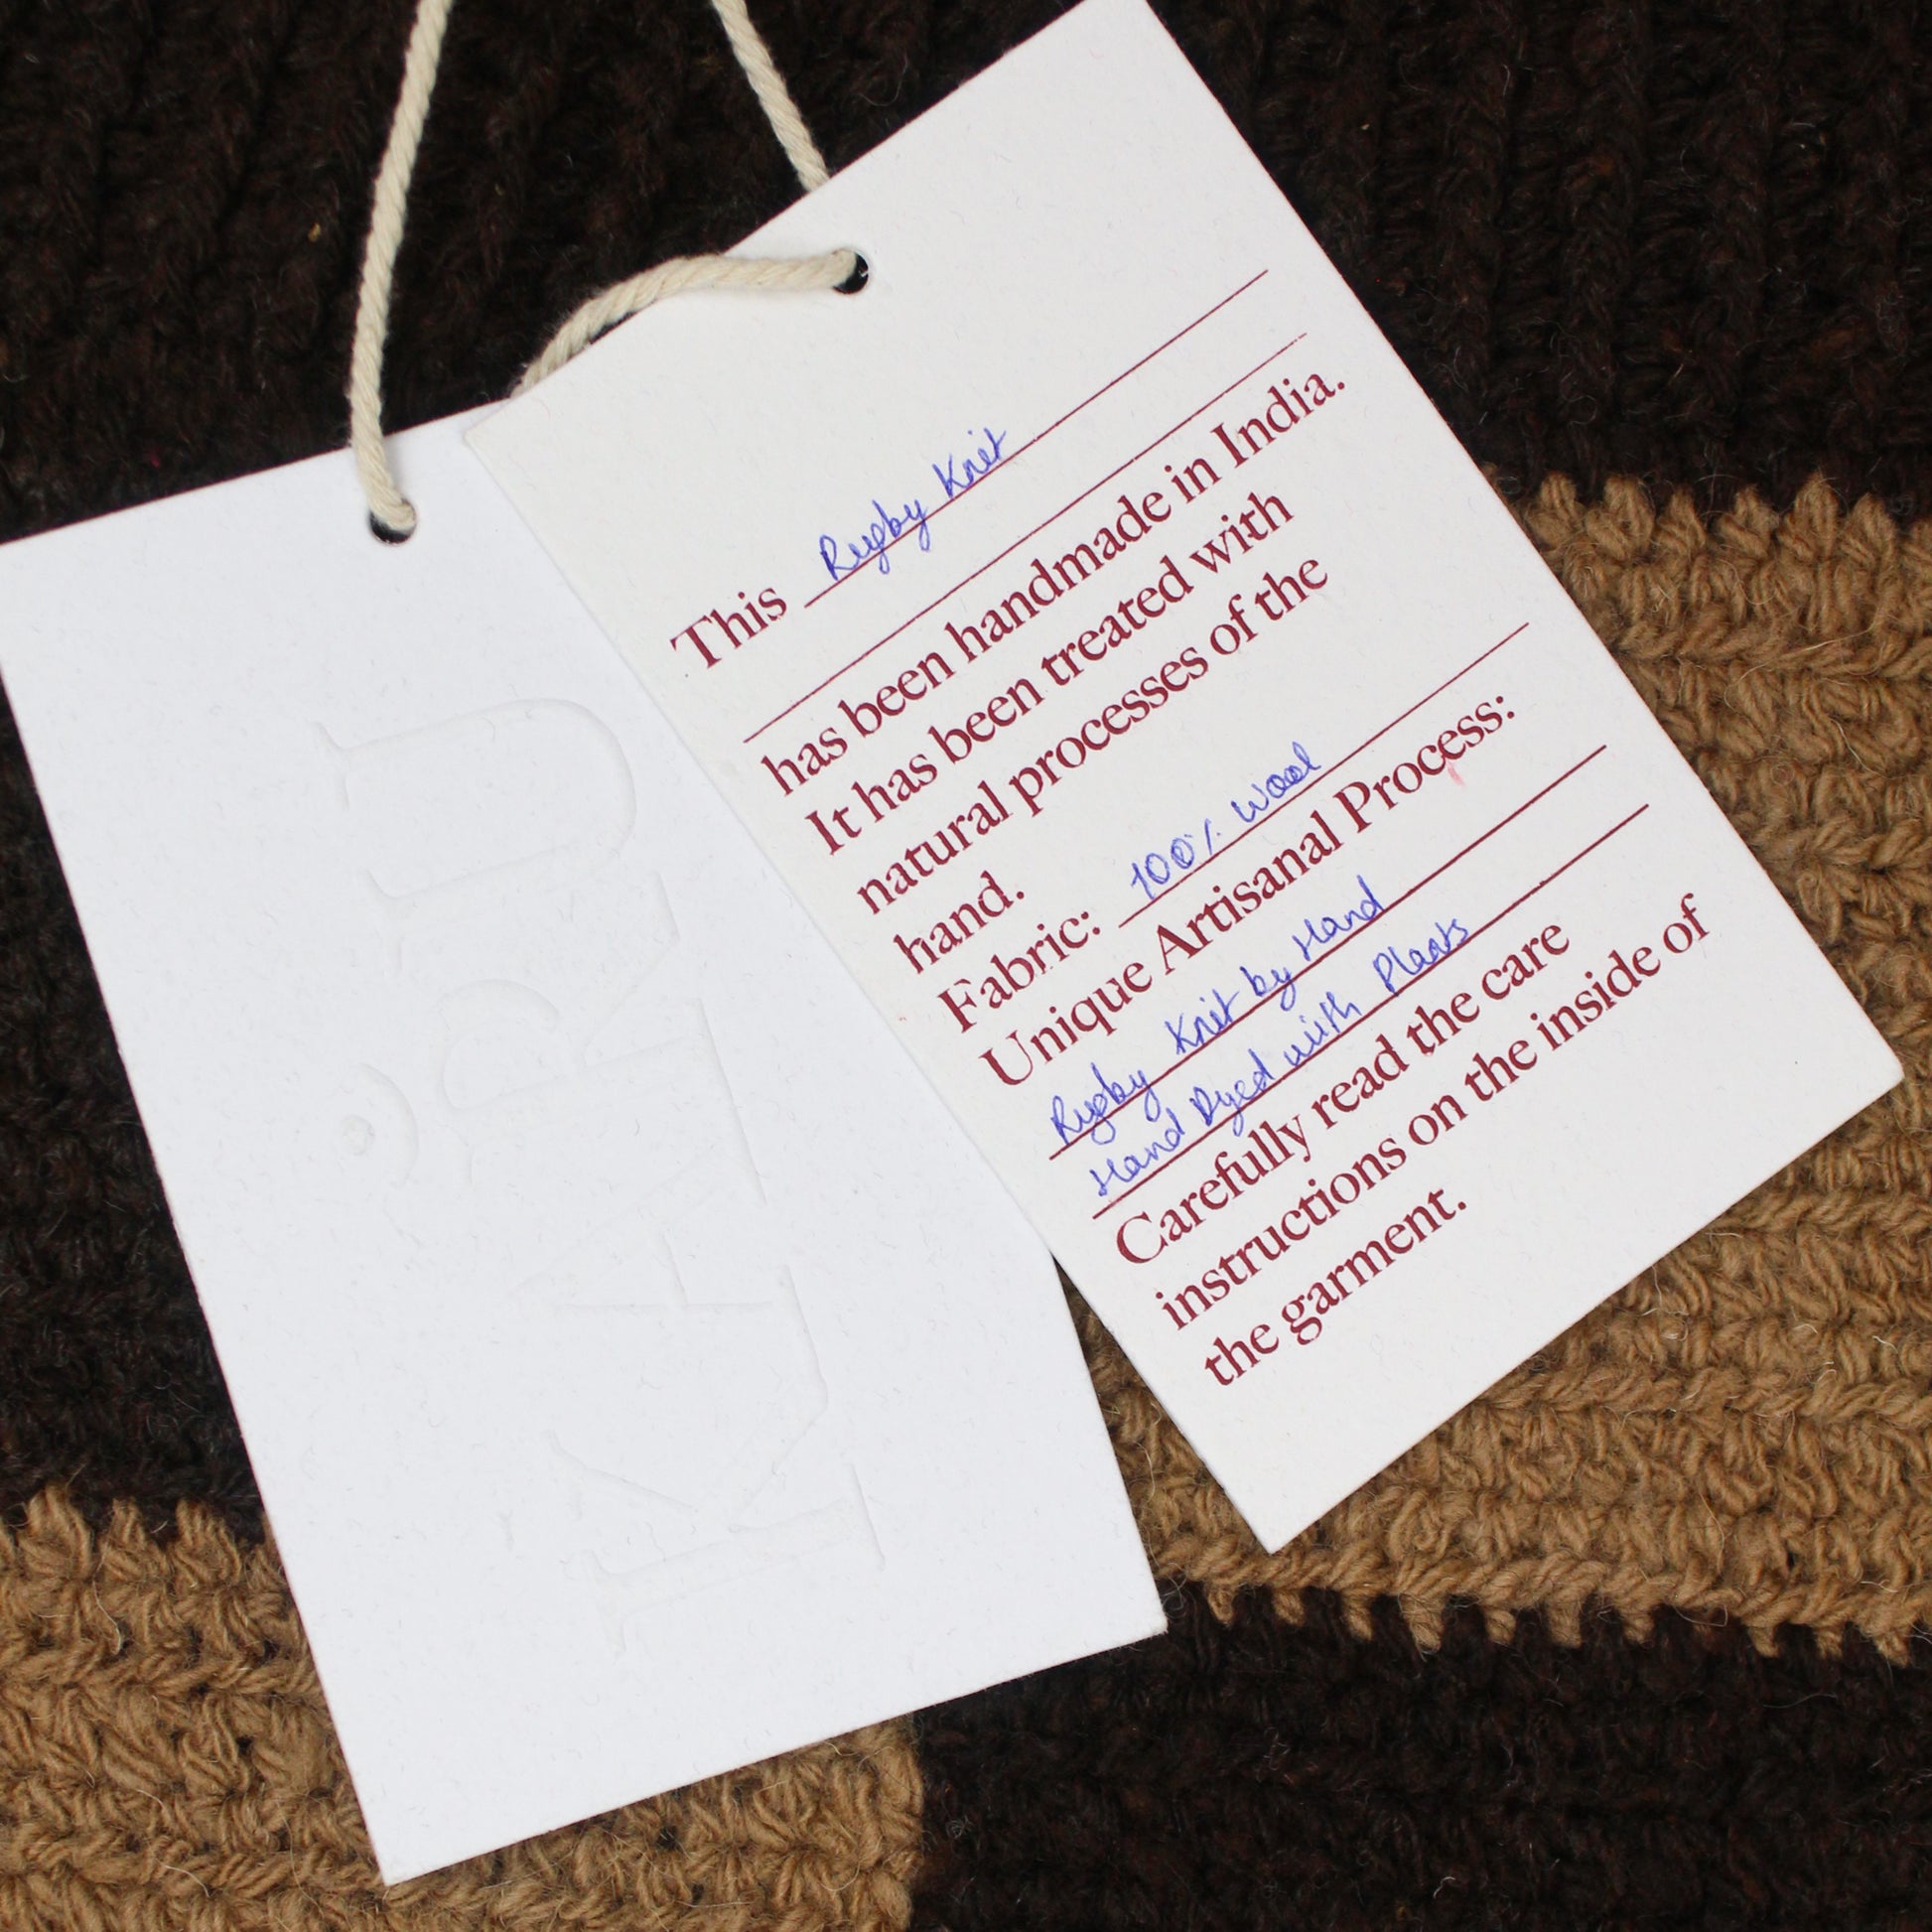 This Rugby Knit
has been handmade in India.
It has been treated with
natural processes of the
hand.
Fabric: 100% Wool
Unique Artisanal Process:
Rugby Knit by Hand
Hand Dyed with Plants
Carefully read the care
instructions on the inside of
the garment.